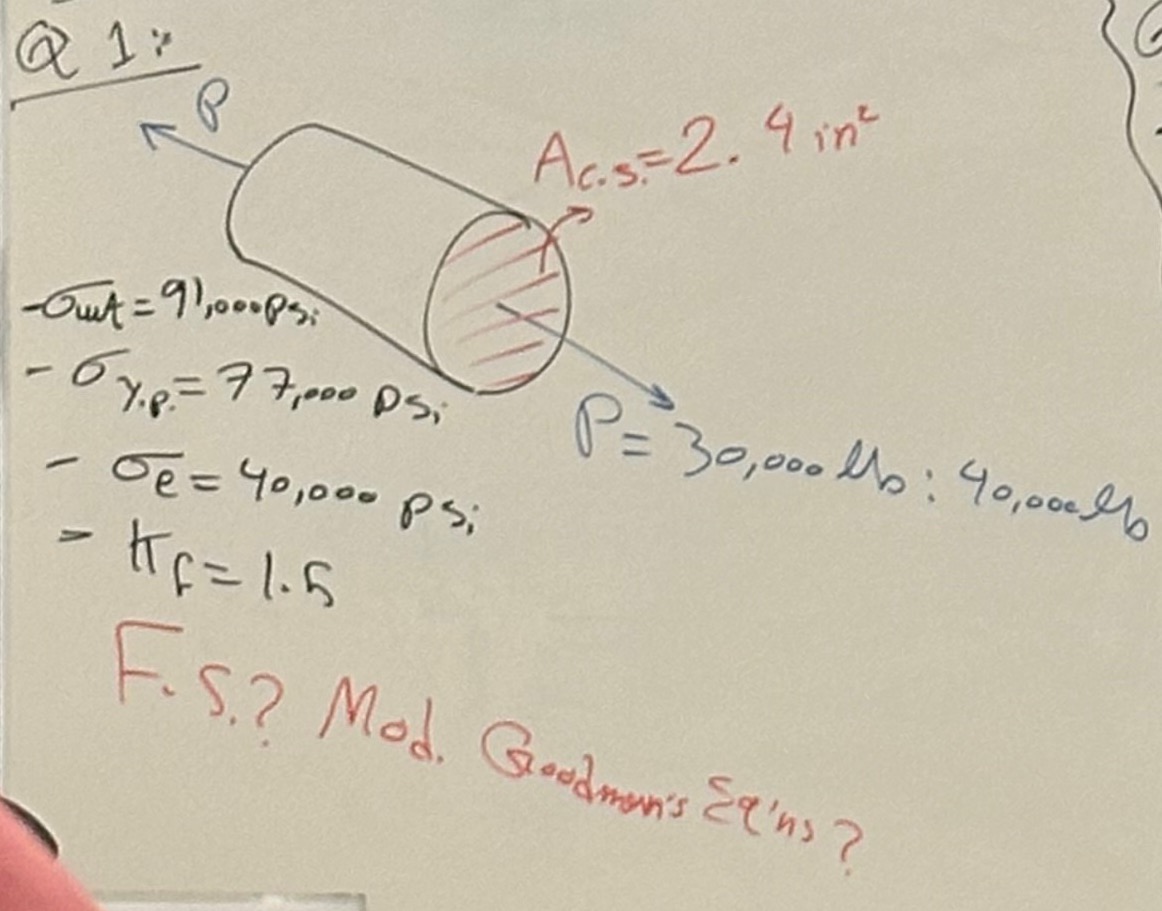 Q 1:
P
A c.s. = 2.4 in²
- σult = 91,000 psi
- σy.p. = 77,000 psi
- σe = 40,000 psi
- Kf = 1.5
P = 30,000 lb : 40,000 lb
F.S.? Mod. Goodman's Eq'ns?